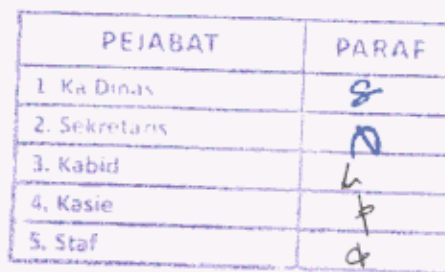 PEJABAT PARAF
1 Ka Dinas
2. Sekretaris
3. Kabid
4. Kasie
5. Staf